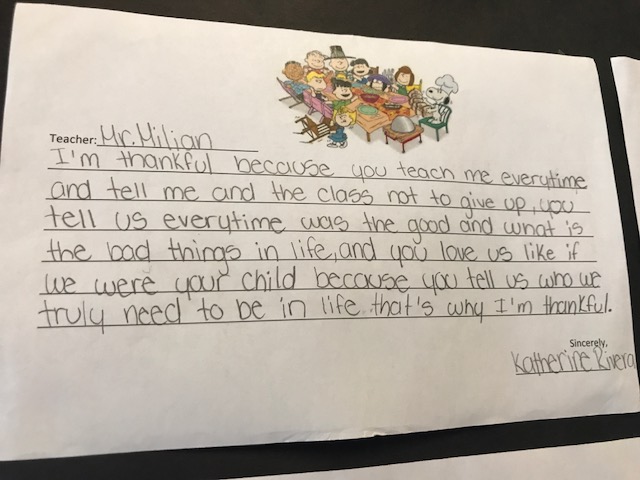 Teacher: Mr. Milian
I'm thankful because you teach me everytime
and tell me and the class not to give up, you
tell us everytime was the good and what is
the bad things in life, and you love us like if
we were your child because you tell us who we
truly need to be in life that's why I'm thankful.
Sincerely,
Katherine Rivera